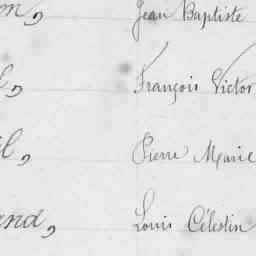 m, Jean Baptiste
l, François Victor
el, Pierre Marie
and, Louis Célestin